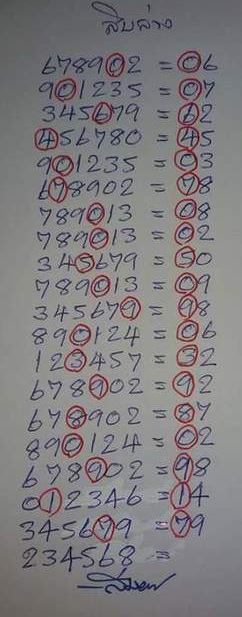 สิบล่าง
678902 = 06
901235 = 07
345679 = 62
456780 = 45
901235 = 03
678902 = 78
789013 = 08
789013 = 02
345679 = 50
789013 = 09
345679 = 98
890124 = 06
123457 = 32
678902 = 92
678902 = 87
890124 = 02
678902 = 98
012346 = 14
345679 = 79
234568 =